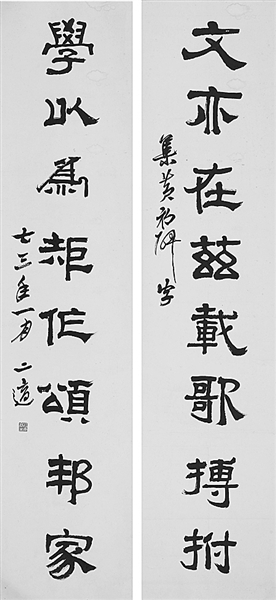 文亦在茲載歌搏拊
集黄初碑字
學以爲矩作頌邦家
七三年一月 二適